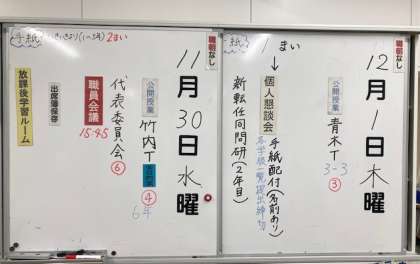 職朝なし
手紙
1まい
12月1日木曜
公開授業 青木T
3-3
③
→個人懇談会 手紙配付(名前あり)
各学級一覧提出締切
新転任同問研(2年目)
職朝なし
手紙
2まい
11月30日水曜
公開授業 竹内T
④
6年
代表委員会
⑥
職員会議
15:45
出席簿保存
放課後学習ルーム